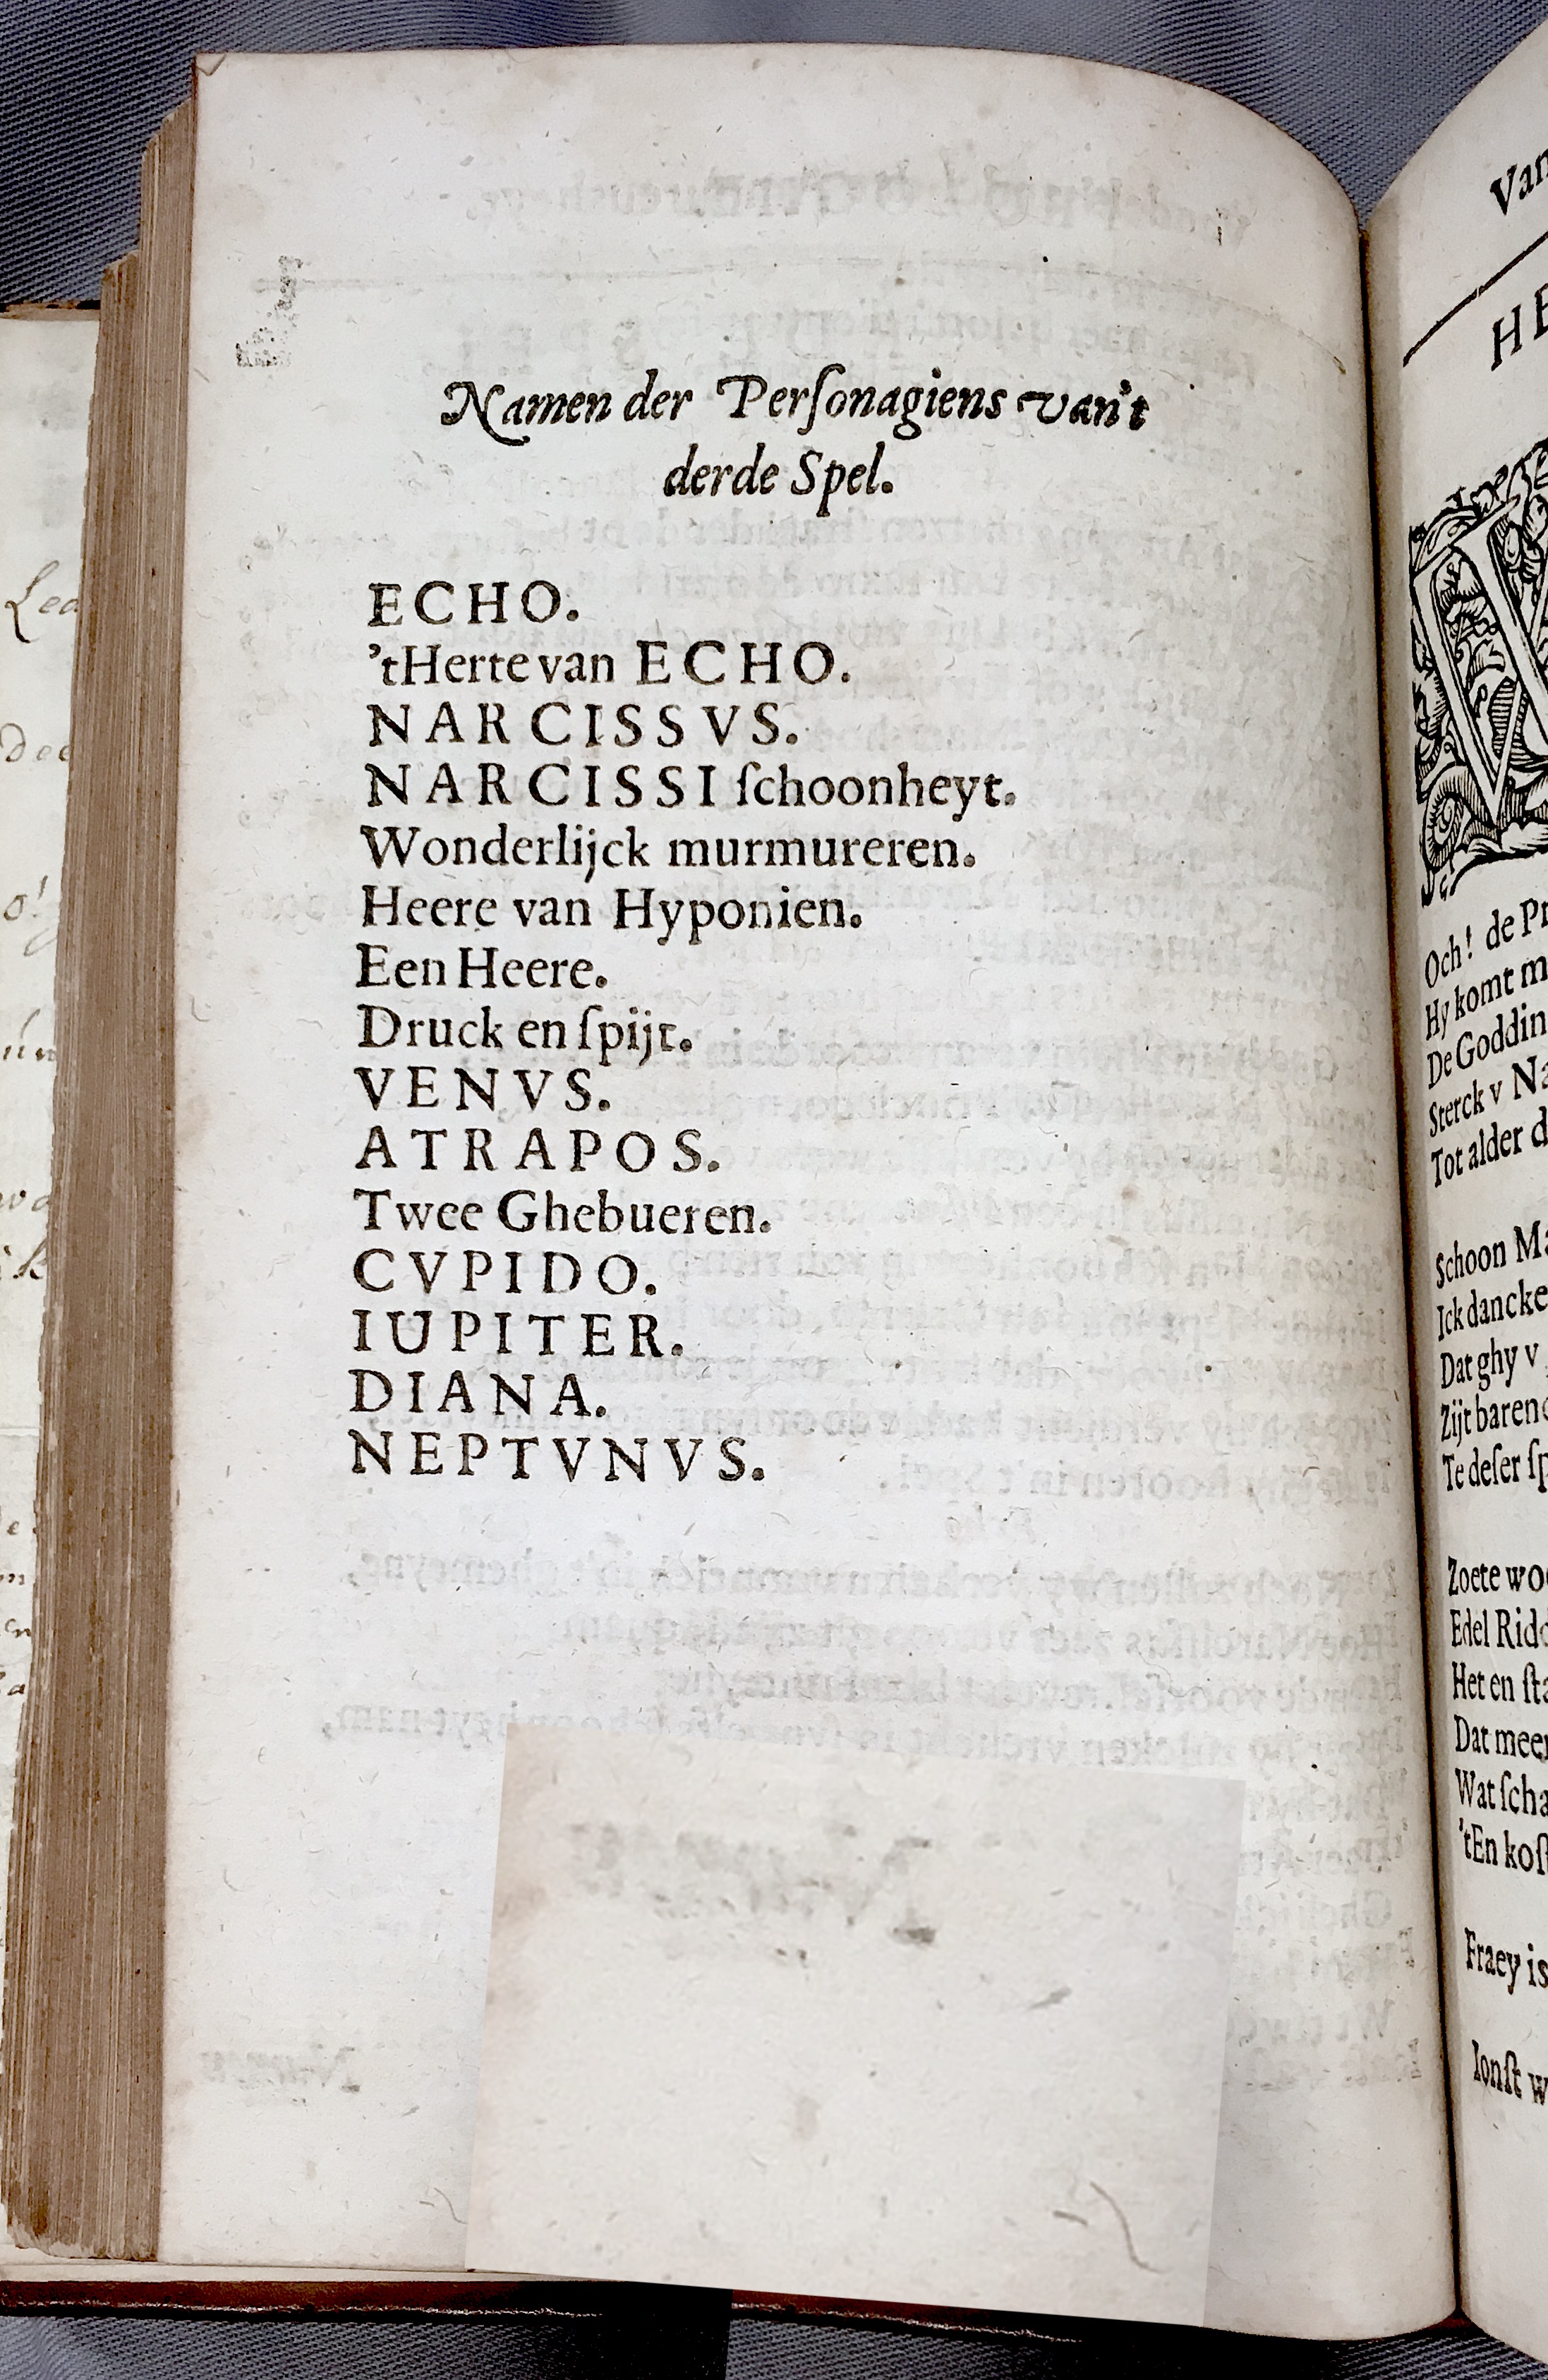 Namen der Perſonagiens van't
derde Spel.
ECHO.
'tHerte van ECHO.
NARCISSVS.
NARCISSI ſchoonheyt.
Wonderlijck murmureren.
Heere van Hyponien.
Een Heere.
Druck en ſpijt.
VENVS.
ATRAPOS.
Twee Ghebueren.
CVPIDO.
IUPITER.
DIANA.
NEPTVNVS.
Och! de
Hy komt
De
Sterck v
Tot alder
Schoon
Ick dancke
Dat ghy v
Zijt
Te deſer
Zoete
Edel
Het en
Dat
Wat
'tEn
Fraey is
Ionſt